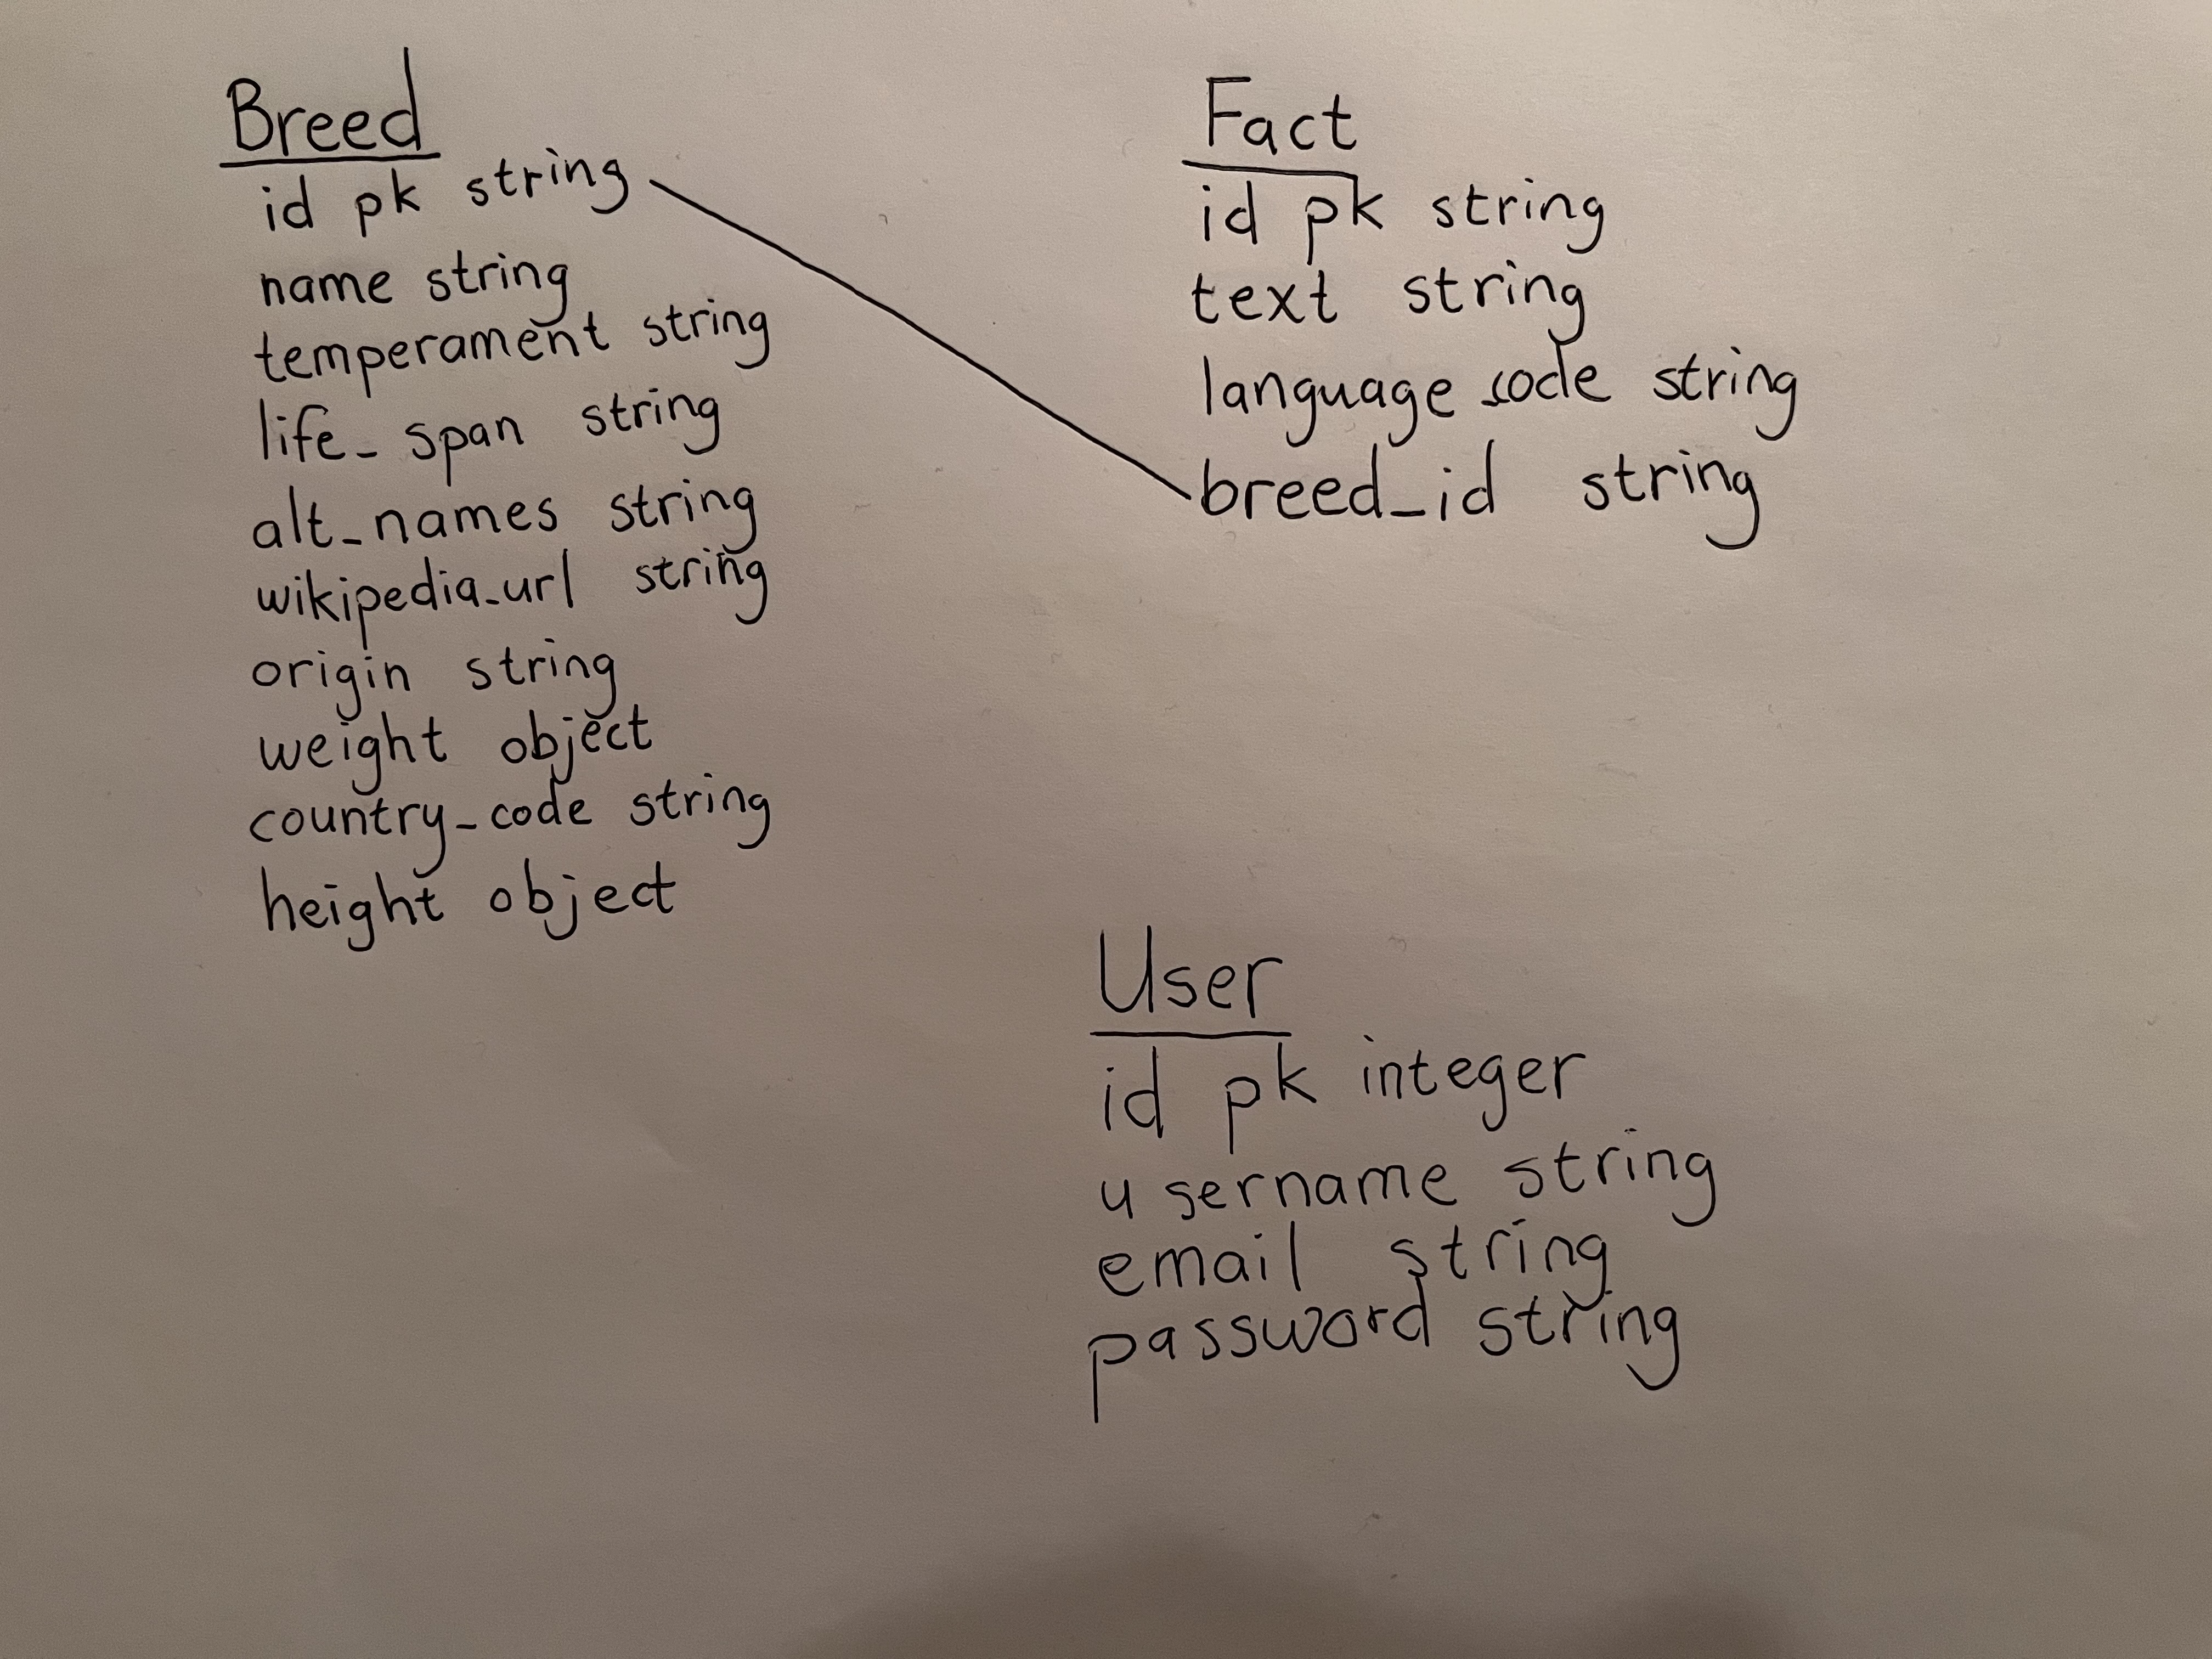 Breed
id pk string
name string
temperament string
life_span string
alt_names string
wikipedia_url string
origin string
weight object
country_code string
height object
Fact
id pk string
text string
language code string
breed_id string
User
id pk integer
username string
email string
password string